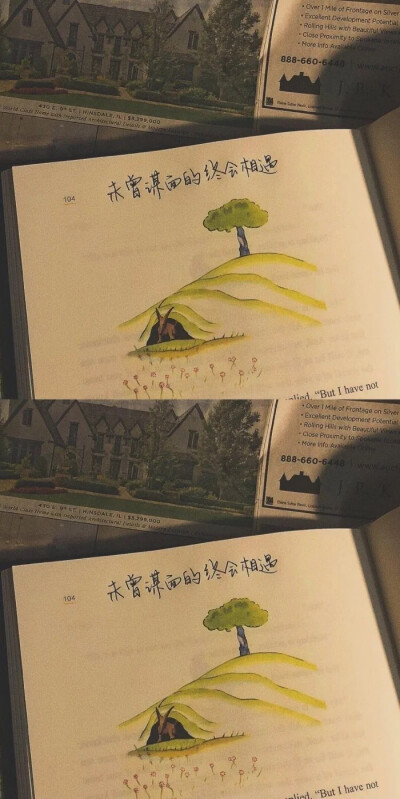 • Over 1 Mile of Frontage on Silver
• Excellent Development Potential
• Rolling Hills with Beautiful
• Close Proximity to
• More Info
888-660-6448
HINSDALE, IL | $3,299,000
104
未曾谋面的终会相遇
"But I have not
• Over 1 Mile of Frontage on Silver
• Excellent Development Potential
• Rolling Hills with Beautiful
• Close Proximity to
• More Info
888-660-6448
HINSDALE, IL | $3,299,000
104
未曾谋面的终会相遇
"But I have not